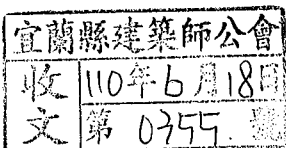 宜蘭縣建築師公會
收文
110年6月18日
第 0355. 號